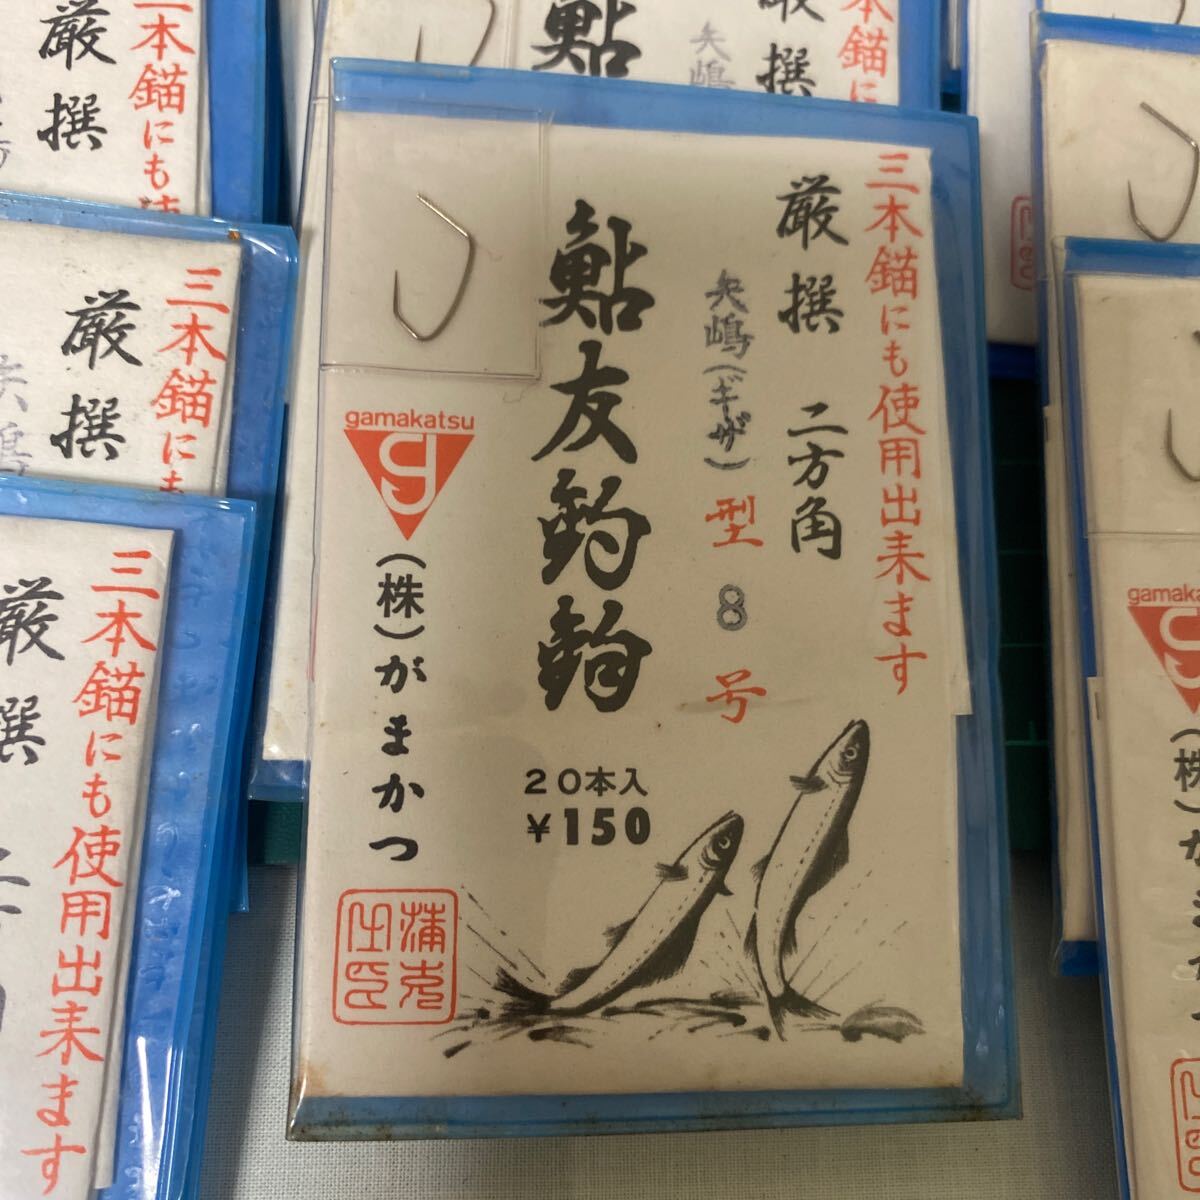 三本錨にも使用出来ます
厳撰 二方角
矢嶋(ギザ)型8号
鮎友釣鈎
20本入
¥150
gamakatsu
(株)がまかつ
三本錨に
厳撰
矢嶋
鮎
三本錨にも使
厳撰
三本錨にも
厳撰
矢嶋
三本錨にも使用出来ます
厳撰
gamaka
(株)がまかつ